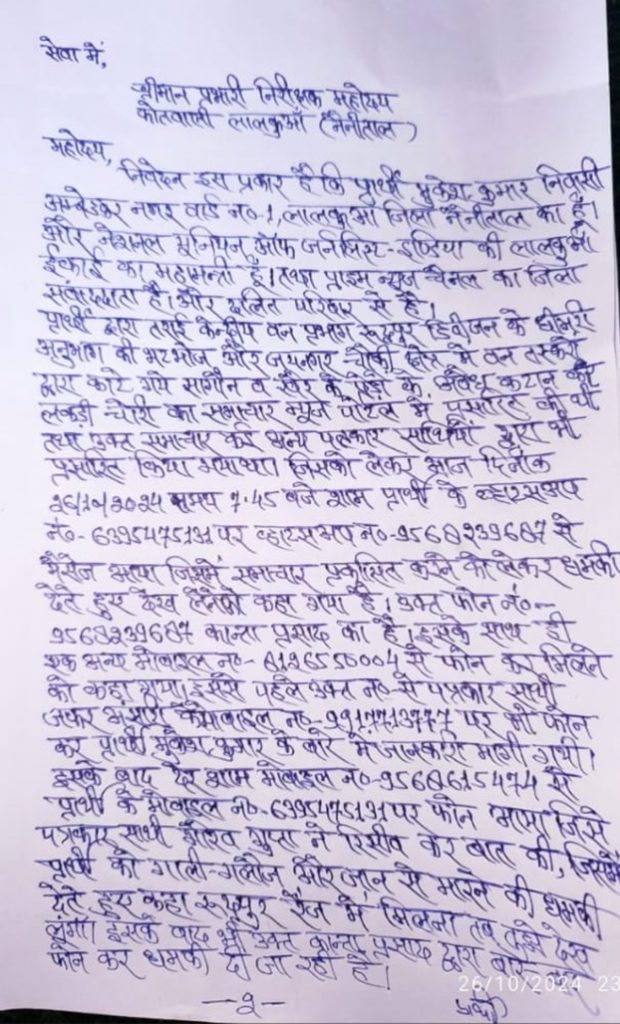 सेवा में,
श्रीमान प्रभारी निरीक्षक महोदय
कोतवाली लालकुआँ (नैनीताल)
महोदय,
निवेदन इस प्रकार है कि प्रार्थी मुकेश कुमार निवासी
अम्बेडकर नगर वार्ड न०-1, लालकुआँ जिला नैनीताल का हूँ।
और नेशनल यूनियन ऑफ जर्नलिस्ट-इण्डिया की लालकुआँ
ईकाई का महामन्त्री हूँ। तथा प्राइम न्यूज चैनल का जिला
संवाददाता है। और दलित परिवार से है।
प्रार्थी द्वारा तराई केन्द्रीय वन प्रभाग रूद्रपुर डिवीजन के पीपली
अनुभाग की भटभोज और जयनगर चौकी क्षेत्र में वन तस्करों
द्वारा काटे गये सागौन व खैर के पेड़ों के अवैध कटान और
लकड़ी चोरी का समाचार न्यूज पोर्टल में प्रसारित की थी
तथा उक्त समाचार कई अन्य पत्रकार साथियों द्वारा भी
प्रसारित किया गया था। जिसको लेकर आज दिनांक
26/10/2024 समय 7.45 बजे शाम प्रार्थी के व्हाटसअप
न०- 6395475131 पर व्हाटसअप न०-9568239687 से
मैसेज आया जिसमें समाचार प्रकाशित करने को लेकर धमकी
देते हुए देख लेने को कहा गया है। उक्त फोन न०-
9568239687 कान्ता प्रसाद का है। इसके साथ ही
एक अन्य मोबाइल न०- से फोन कर मिलने
को कहा गया। इससे पहले उक्त न० से पत्रकार साथी
जफर अंसारी के मोबाइल न०- पर भी फोन
कर प्रार्थी मुकेश कुमार के बारे में जानकारी मांगी गयी।
इसके बाद देर शाम मोबाइल न०-9568615474 से
प्रार्थी के मोबाइल न०- 6395475131 पर फोन आया जिसे
पत्रकार साथी गुप्ता ने रिसीव कर बात की, जिसमें
प्रार्थी को गाली-गलौज और जान से मारने की धमकी
देते हुए कहा रूद्रपुर रेंज में मिलना तब तुझे देख
लूंगा। इसके बाद भी उक्त कान्ता प्रसाद द्वारा बार
फोन कर धमकी दी जा रही है।
—2—
26/10/2024 23